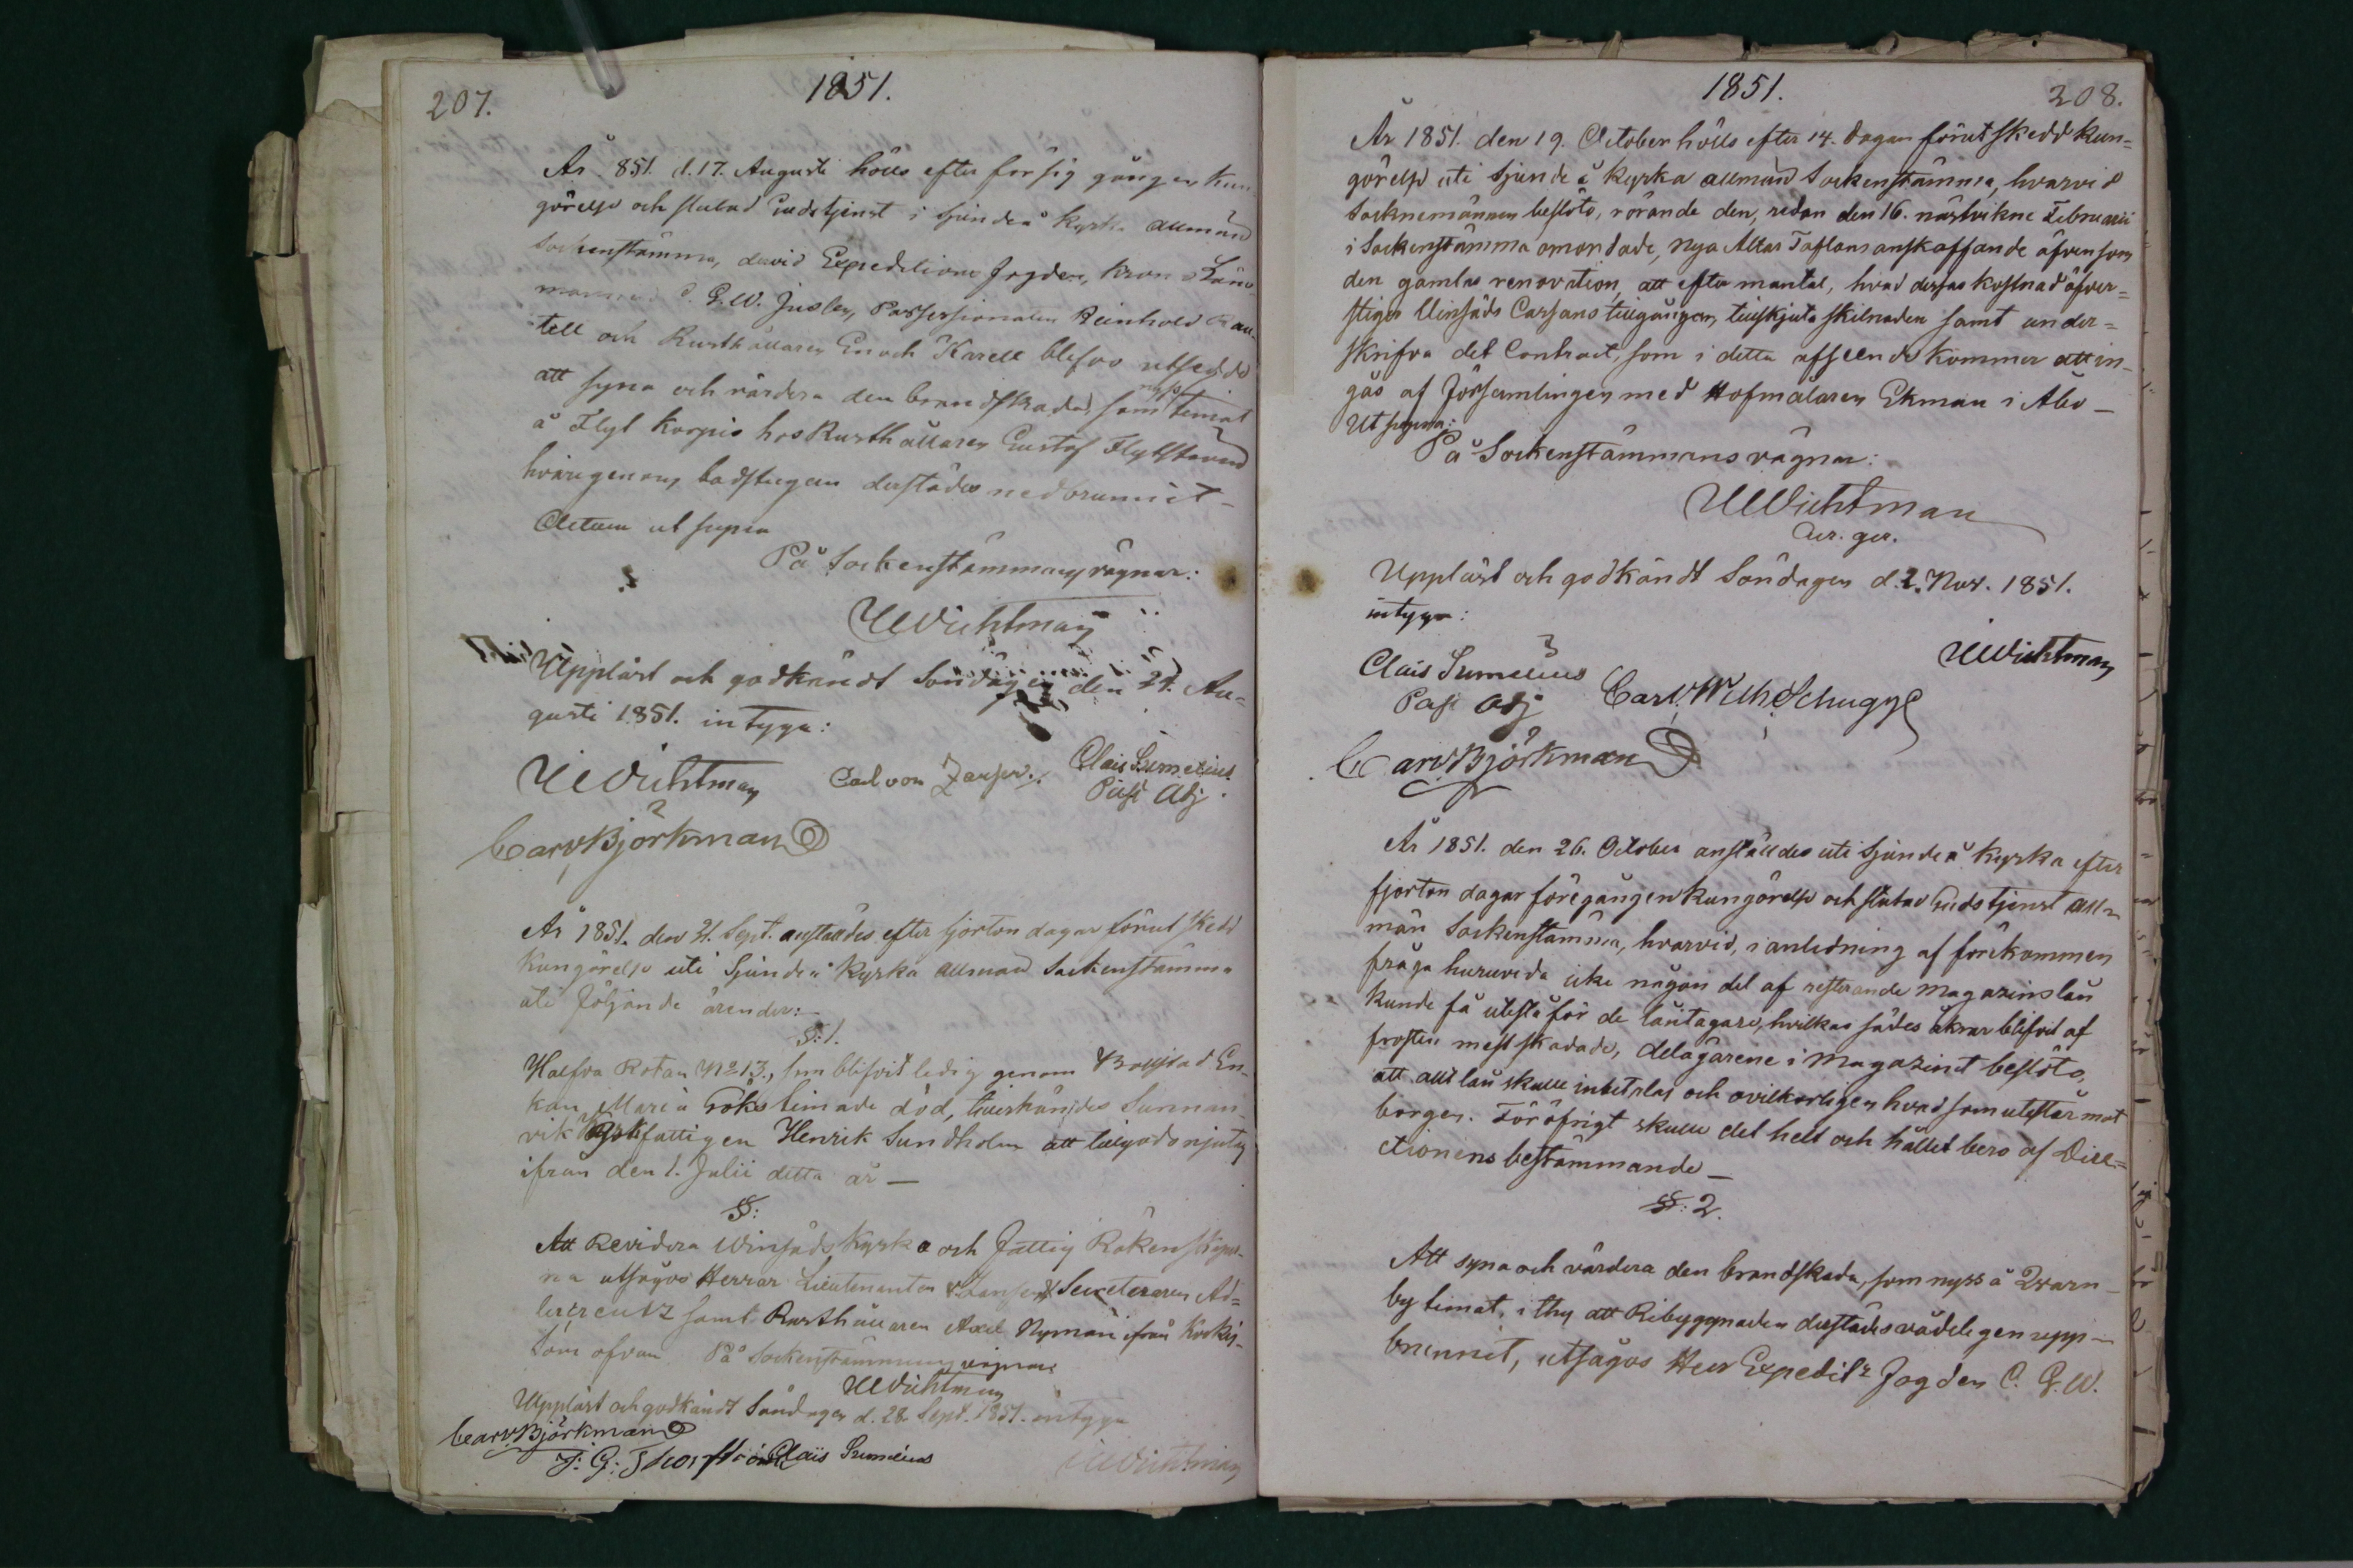 207.
1851.
År 1851. d. 17. Augusti hölls efter försig gången kun
görelse och slutad Gudstjenst i Sjundeå kyrka allmän
Sockenstämma, dervid Expeditions Fogden, Krono Läns-
mannen C. G. W. Jusleen, Possessionaten Reinhold
tell och Rusthållaren Enoch Karell blefvo utsedde
att syna och värdera den brandskada, som nyss timat
å Flyt Korpis hos Rusthållaren Gustaf
hvarigenom badstugan derstädes nedbrunnit -
Actum ut supra
På Sockenstämmans vägnar:
UWichtman
Uppläst och godkändt Söndagen den 24. Au-
gusti 1851. intyga:
UWichtman Carl von Clais Sumelius
Past Adj.
Carl Björkman
År 1851. den 21. Sept. anställdes efter fjorton dagar förut skedd
Kungörelse uti Sjundeå Kyrka allmän Sockenstämma
uti följande ärender:
§:1.
Halfva Rotan No 13., som blifvit ledig genom En-
kan Maria Göks timade död, tillerkändes Sunnan
vik fattigen Henrik Sundholm att tillgodo njuta
ifrån den 1. Julii detta år —
§:
Att Revidera Winsäds Kyrko och Fattig Räkenskaper-
na utsågos Herrar Lieutenanten v. Jansen, Secreteraren Ad-
lercreutz samt Rusthållaren Axel Nyman ifrån Koskis.
Som ofvan På Sockenstämmans vägnar
UWichtman
Uppläst och godkändt Söndagen d. 28. Sept. 1851. intyga
Carl Björkman
F: G: Clais Sumelius UWichtman
1851.
208.
År 1851. den 19. October hölls efter 14. dagar förut skedd Kun=
görelse uti Sjundeå Kyrka allmän Sockenstämma, hvarvid
Socknemännen beslöto, rörande den, redan den 16. nästvikne Februarii
i Sockenstämma omordade, nya Altar Taflans anskaffande äfvensom
den gamlas renovation, att efter mantal, hvad dessas kostnad öfver=
stiger Winsäds Cassans tillgångar, tillskjuta skilnaden samt under=
skrifva det Contract, som i detta afseende kommer att in-
gås af Församlingen med Hofmålaren Ekman i Åbo —
Ut supra:
På Sockenstämmans vägnar:
UWichtman
Uppläst och godkändt Söndagen d. 2. Nov. 1851.
intyga:
UWichtman
Clais Sumelius
Past Adj Carl Wilh Schugge
Carl Björkman
År 1851. den 26. October anställdes uti Sjundeå Kyrka efter
fjorton dagar föregången Kungörelse och slutad Gudstjenst all-
män Sockenstämma, hvarvid, i anledning af förekommen
fråga huruvida icke någon del af resterande Magazinslån
kunde få utestå för de låntagare, hvilkas sädes åkrar blifvit af
frosten mest skadade, delägarene i Magazinet beslöto,
att allt lån skulle inbetalas och ovilkorligen hvad som utestår mot
borgen. För öfrigt skulle det helt och hållet bero af Dire=
ctionens bestämmande —
§: 2.
Att syna och värdera den brandskada, som nyss å Qvarn-
by timat, i thy att Ribyggnaden derstädes vådeligen upp-
brunnit, utsågos Herr Expeditns Fogden C. G. W.